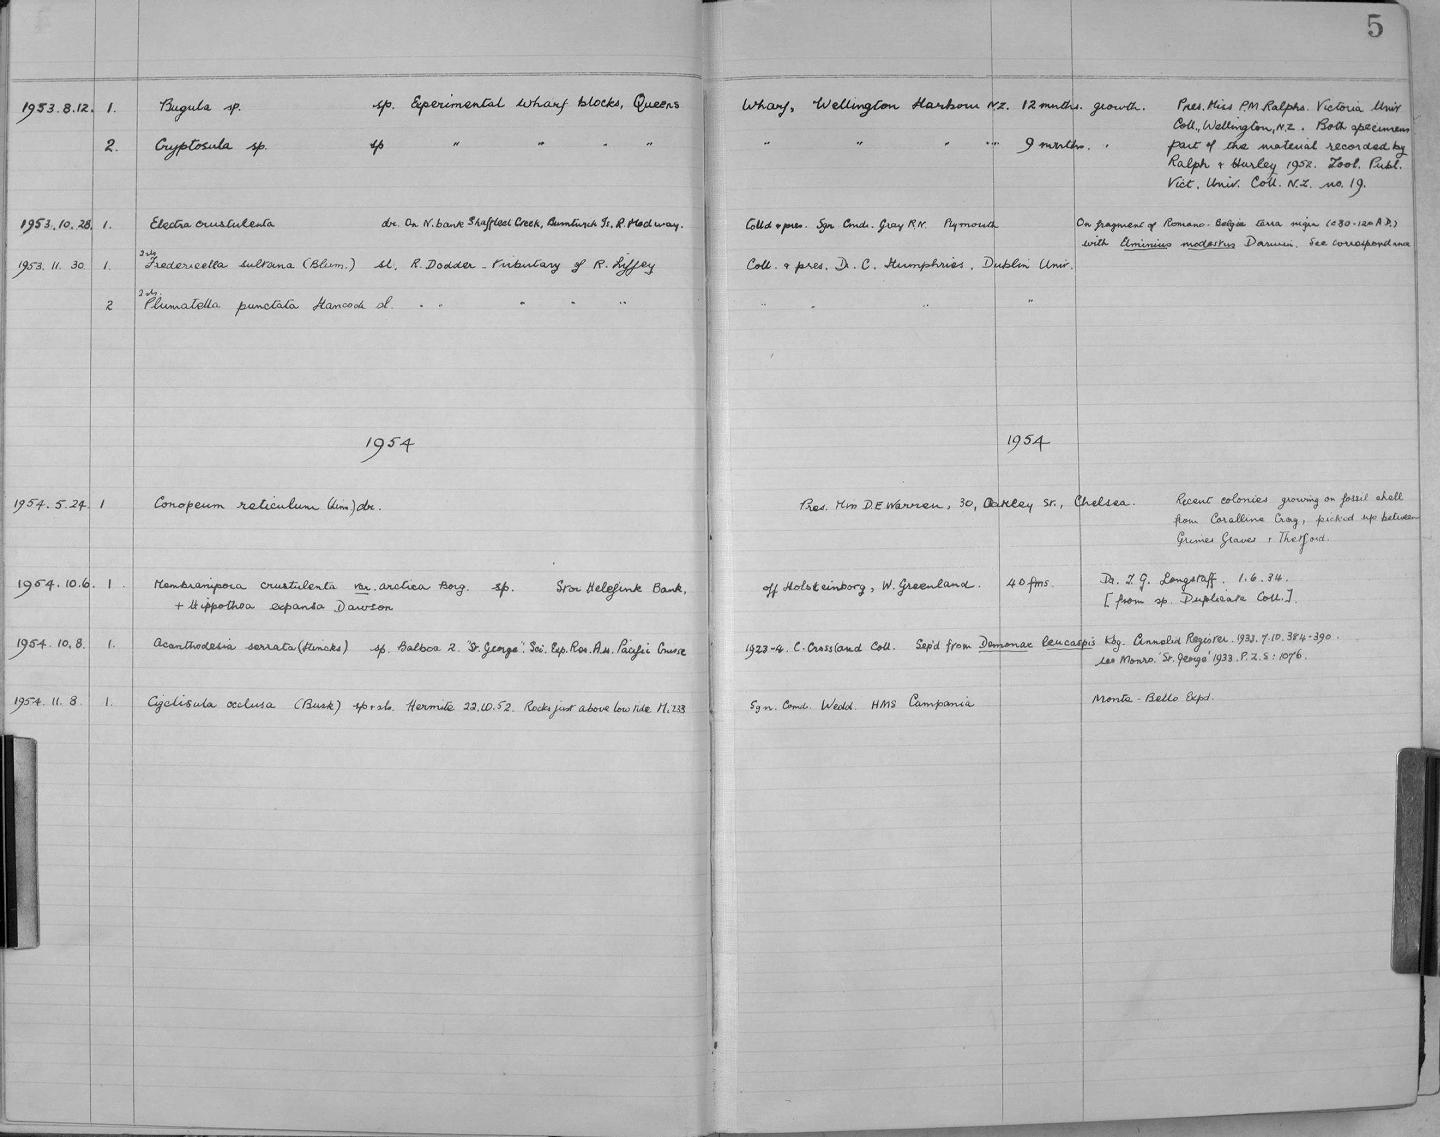 5
1953.8.12. 1. Bugula sp. sp. Experimental wharf blocks, Queens Wharf, Wellington Harbour N.Z. 12 mnths. growth. Pres. Miss P.M. Ralphs. Victoria Univ
Coll., Wellington, N.Z. Both specimens
2. Cryptosula sp. sp " " " " " " " " 9 mnths. " part of the material recorded by
Ralph + Hurley 1952. Zool. Publ.
Vict. Univ. Coll. N.Z. no. 19.
1953.10.28. 1. Electra crustulenta dr. On N. bank Shaffleet Creek, Burntwick Is. R. Medway. Colld + pres. Sgn Cmdr. Gray R.N. Plymouth On fragment of Romano-Belgic terra nigra (c80-120 A.D.)
with Eliminius modestus Darwin. See correspondence
2 sls
1953.11.30. 1. Fredericella sultana (Blum.) sl. R. Dodder - tributary of R. Lyffey Coll. + pres. Dr. C. Humphries, Dublin Univ.
2 sls.
2 Plumatella punctata Hancock sl. " " " " " " " " "
1954 1954
1954.5.24. 1 Conopeum reticulum (Linn) dr. Pres. Miss D.E Warren, 30, Oakley St., Chelsea. Recent colonies growing on fossil shell
from Coralline Crag, picked up between
Grimes Graves + Thetford.
1954.10.6. 1 Membranipora crustulenta var. arctica Borg. sp. Stor Helefjink Bank, off Holsteinborg, W. Greenland. 40 fms. Dr. T. G. Longstaff. 1.6.34.
+ Hippothoa expansa Dawson [from sp. Duplicate Coll.].
1954.10.8. 1. Acanthodesia serrata (Hincks) sp. Balboa 2. 'St. George'. Sci. Exp. Res. Ass. Pacific Cruise 1923-4. C. Crossland Coll. Sep'd from Demonax leucaspis Kbg. Annelid Register. 1933.7.10.384-390.
see Monro. 'St. George' 1933. P.Z.S: 1076.
1954.11.8. 1. Cigclisula occlusa (Busk) sp + sls. Hermite 22.10.52. Rocks just above low tide M.233 Sgn. Comd. Wedd. HMS Campania Monte-Bello Expd.